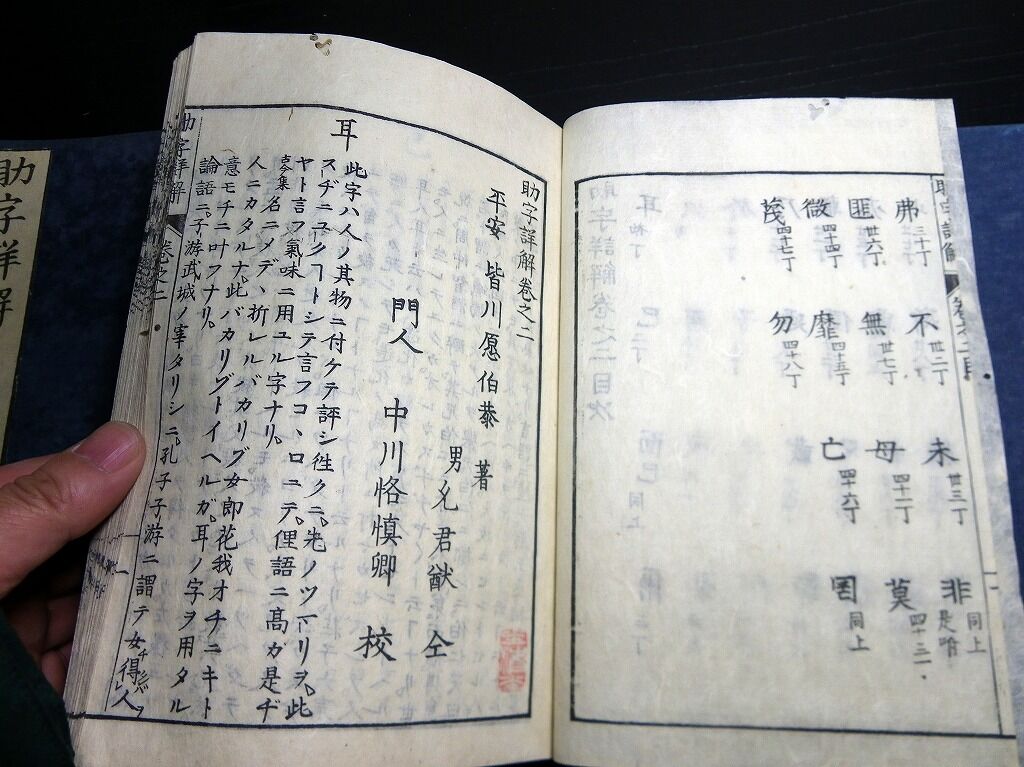 弗 三十丁 不 卅二丁 未 卅三丁 非 同上
匪 卅六丁 無 卅七丁 毋 四十二丁 莫 四十三丁
微 四十四丁 靡 四十五丁 亡 四十六丁 罔 同上
蔑 四十七丁 勿 四十八丁
助字詳解卷之二
平安 皆川愿伯恭 著
男 允君猷 仝
門人 中川恪慎卿 校
耳
此字ハ人ノ其物ニ付ケテ評シ徃クニ。先ノツマリヲ。此
スヂニユクヿトシテ言フコヽロニテ。俚語ニ髙ガ是ヂ
ヤト言フ氣味ニ用ユル字ナリ。
古今集 名ニメデヽ折レルバカリゾ女郎花我オチニキト
人ニカタルナ。此バカリゾトイヘルガ。耳ノ字ヲ用タル
意モチニ叶フナリ。
論語ニ。子游武城ノ宰タリシニ。孔子子游ニ謂テ女得人
助字詳解
卷之二
助字詳解